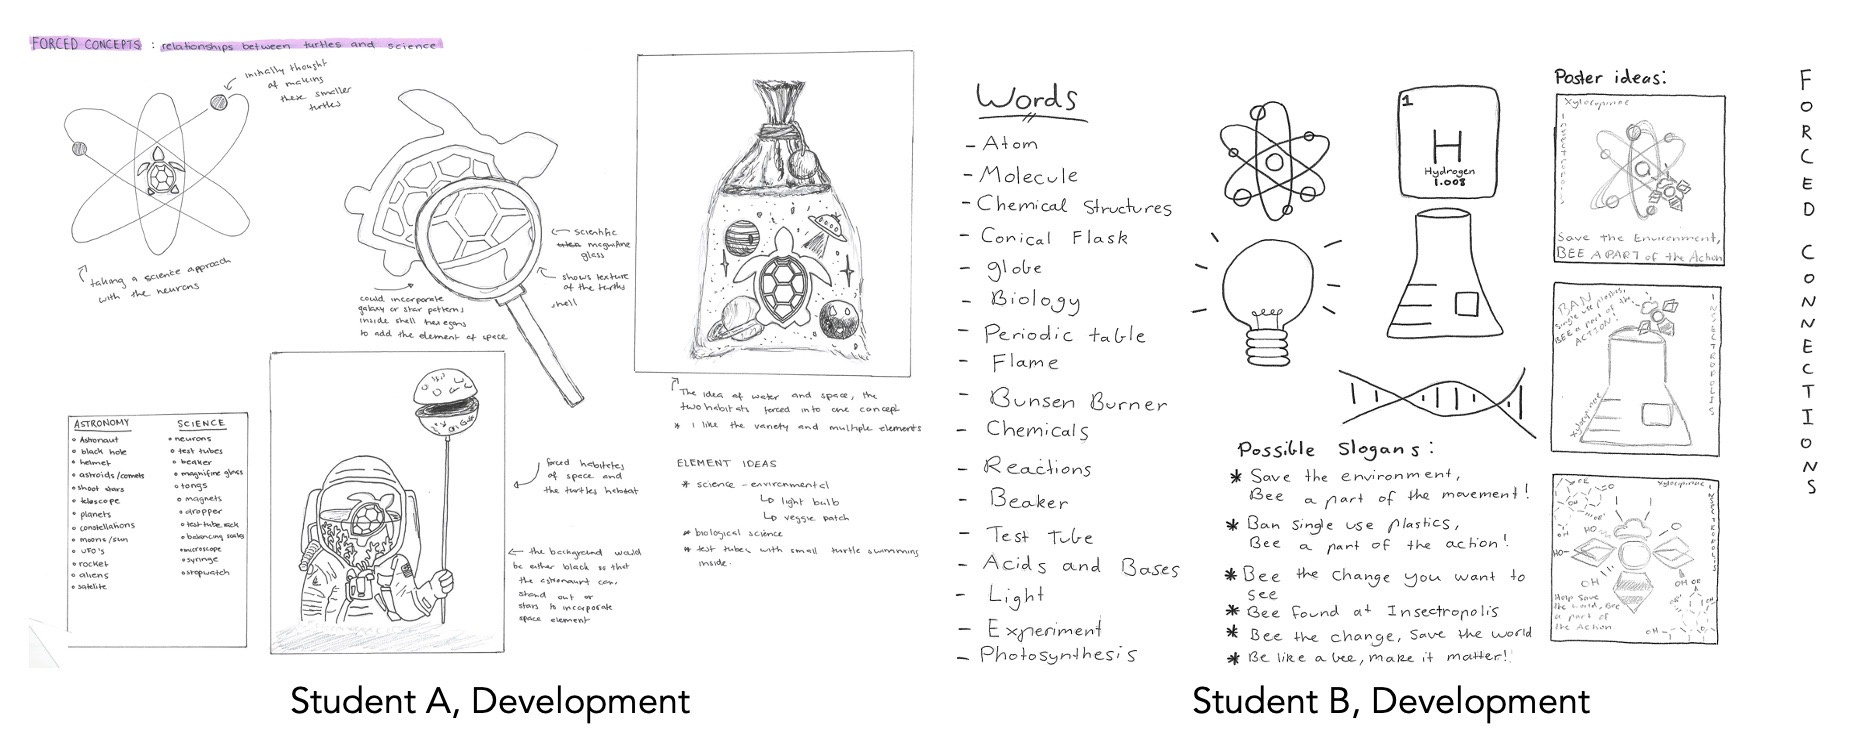 FORCED CONCEPTS : relationships between turtles and science
initially thought
of making
these smaller
turtles
taking a science approach
with the neurons
scientific
magnifine
glass
shows texture
of the turtles
shell
could incorporate
galaxy or star patterns
inside shell hexagons
to add the element of space
The idea of water and space, the
two habitats forced into one concept
* I like the variety and multiple elements
ELEMENT IDEAS
* science - environmental
↳ light bulb
↳ veggie patch
* biological science
* test tubes with small turtle swimming
inside.
forced habitates
of space and
the turtles habitat
the background would
be either black so that
the astronaut can
stand out or
stars to incorporate
space element
ASTRONOMY
Astronaut
black hole
helmet
astroids/comets
shoot stars
teloscope
planets
constellations
moons/sun
UFO's
rocket
aliens
satelite
SCIENCE
neurons
test tubes
beaker
magnifine glass
tongs
magnets
dropper
test tube rack
balancing scales
microscope
syringe
stopwatch
Student A, Development
Words
- Atom
- Molecule
- Chemical Structures
- Conical Flask
- globe
- Biology
- Periodic table
- Flame
- Bunsen Burner
- Chemicals
- Reactions
- Beaker
- Test Tube
- Acids and Bases
- Light
- Experiment
- Photosynthesis
1
H
Hydrogen
1.008
Possible Slogans :
* Save the environment,
Bee a part of the movement!
* Ban single use plastics,
Bee a part of the action!
* Bee the change you want to
see
* Bee found at Insectropolis
* Bee the change, Save the world
* Be like a bee, make it matter!
Poster ideas:
Xylocopinae
Save the Environment,
BEE A PART of the Action
BAN
Single use plastics,
BEE a part of the
ACTION!
INSECTROPOLIS
Xylocopinae
Xylocopinae
INSECTROPOLIS
HO
OH
HO-
OH
OH
OH
Help Save
the world, Bee
a part of
the Action
FORCED CONNECTIONS
Student B, Development